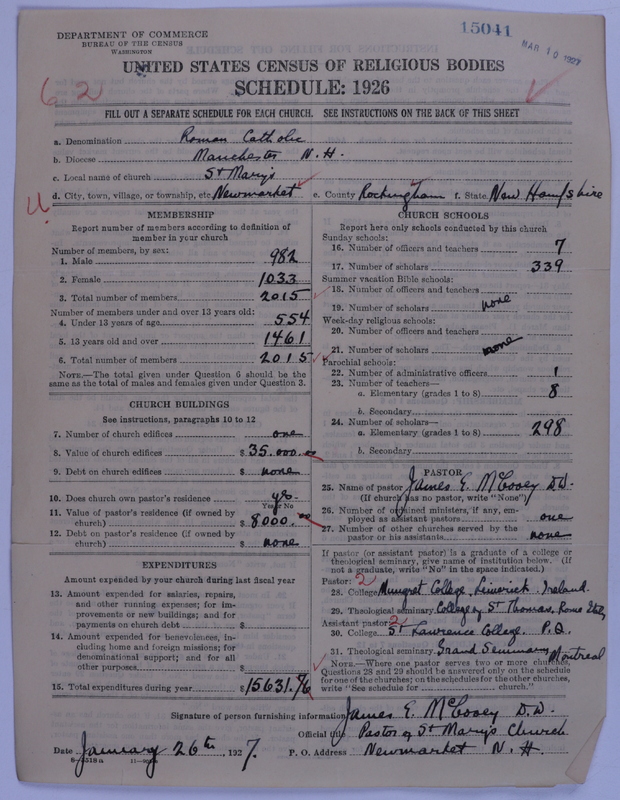 DEPARTMENT OF COMMERCE
BUREAU OF THE CENSUS
WASHINGTON
15041
MAR 10 1927
UNITED STATES CENSUS OF RELIGIOUS BODIES
SCHEDULE: 1926
62
FILL OUT A SEPARATE SCHEDULE FOR EACH CHURCH. SEE INSTRUCTIONS ON THE BACK OF THIS SHEET
a. Denomination Roman Catholic
b. Diocese Manchester N.H.
c. Local name of church St Mary's
d. City, town, village, or township, etc. Newmarket e. County Rockingham f. State New Hampshire
MEMBERSHIP
Report number of members according to definition of
member in your church
Number of members, by sex:
1. Male 982
2. Female 1033
3. Total number of members 2015
Number of members under and over 13 years old:
4. Under 13 years of age 554
5. 13 years old and over 1461
6. Total number of members 2015
NOTE.—The total given under Question 6 should be the
same as the total of males and females given under Question 3.
CHURCH BUILDINGS
See instructions, paragraphs 10 to 12
7. Number of church edifices one
8. Value of church edifices $ 35.000.00
9. Debt on church edifices $ none
10. Does church own pastor's residence yes
Yes or No
11. Value of pastor's residence (if owned by
church) $ 8000.00
12. Debt on pastor's residence (if owned by
church) $ none
EXPENDITURES
Amount expended by your church during last fiscal year
13. Amount expended for salaries, repairs,
and other running expenses; for im-
provements or new buildings; and for
payments on church debt $
14. Amount expended for benevolences, in-
cluding home and foreign missions; for
denominational support; and for all
other purposes $
15. Total expenditures during year $ 15631.76
CHURCH SCHOOLS
Report here only schools conducted by this church
Sunday schools:
16. Number of officers and teachers 7
17. Number of scholars 339
Summer vacation Bible schools:
18. Number of officers and teachers
19. Number of scholars none
Week-day religious schools:
20. Number of officers and teachers
21. Number of scholars none
Parochial schools:
22. Number of administrative officers 1
23. Number of teachers—
a. Elementary (grades 1 to 8) 8
b. Secondary
24. Number of scholars—
a. Elementary (grades 1 to 8) 298
b. Secondary
PASTOR
25. Name of pastor James E. McCooey D.D.
(If church has no pastor, write "None")
26. Number of ordained ministers, if any, em-
ployed as assistant pastors one
27. Number of other churches served by the
pastor or his assistants none
If pastor (or assistant pastor) is a graduate of a college or
theological seminary, give name of institution below. (If
not a graduate, write "No" in the space indicated.)
Pastor: 2
28. College Mungret College, Limerick. Ireland.
29. Theological seminary College of St Thomas, Rome Italy
Assistant pastor: 2
30. College St Lawrence College. P.Q.
31. Theological seminary Grand Seminary Montreal
NOTE.—Where one pastor serves two or more churches,
Questions 28 and 29 should be answered only on the schedule
for one of the churches; on the schedules for the other churches,
write "See schedule for church."
Signature of person furnishing information James E. McCooey D.D.
Official title Pastor of St Mary's Church
Date January 26th, 1927. P. O. Address Newmarket N.H.